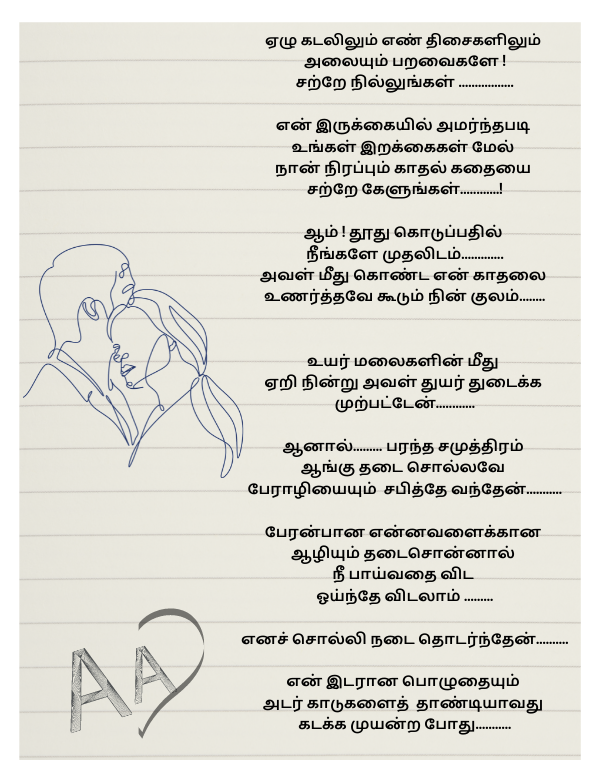 ஏழு கடலிலும் எண் திசைகளிலும்
அலையும் பறவைகளே !
சற்றே நில்லுங்கள் .................
என் இருக்கையில் அமர்ந்தபடி
உங்கள் இறக்கைகள் மேல்
நான் நிரப்பும் காதல் கதையை
சற்றே கேளுங்கள்............!
ஆம் ! தூது கொடுப்பதில்
நீங்களே முதலிடம்.............
அவள் மீது கொண்ட என் காதலை
உணர்த்தவே கூடும் நின் குலம்........
உயர் மலைகளின் மீது
ஏறி நின்று அவள் துயர் துடைக்க
முற்பட்டேன்............
ஆனால்......... பரந்த சமுத்திரம்
ஆங்கு தடை சொல்லவே
பேராழியையும் சபித்தே வந்தேன்...........
பேரன்பான என்னவளைக்கான
ஆழியும் தடைசொன்னால்
நீ பாய்வதை விட
ஓய்ந்தே விடலாம் .........
எனச் சொல்லி நடை தொடர்ந்தேன்..........
என் இடரான பொழுதையும்
அடர் காடுகளைத் தாண்டியாவது
கடக்க முயன்ற போது...........
AA